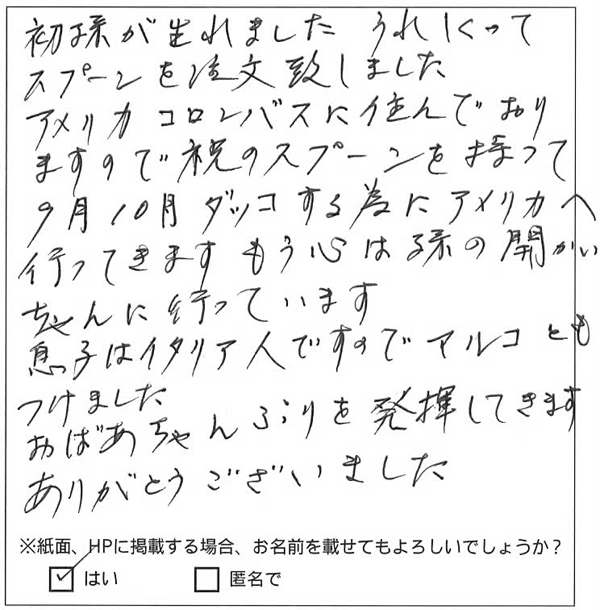 初孫が生れました うれしくって
スプーンを注文致しました
アメリカ コロンバスに住んでおり
ますので 祝のスプーンを持って
9月10月 ダッコする為に アメリカへ
行ってきます もう心は孫の開かい
ちゃんに行っています
息子はイタリア人ですので アルコとも
つけました
おばあちゃんぶりを発揮してきます
ありがとうございました
※紙面、HPに掲載する場合、お名前を載せてもよろしいでしょうか？
はい 匿名で